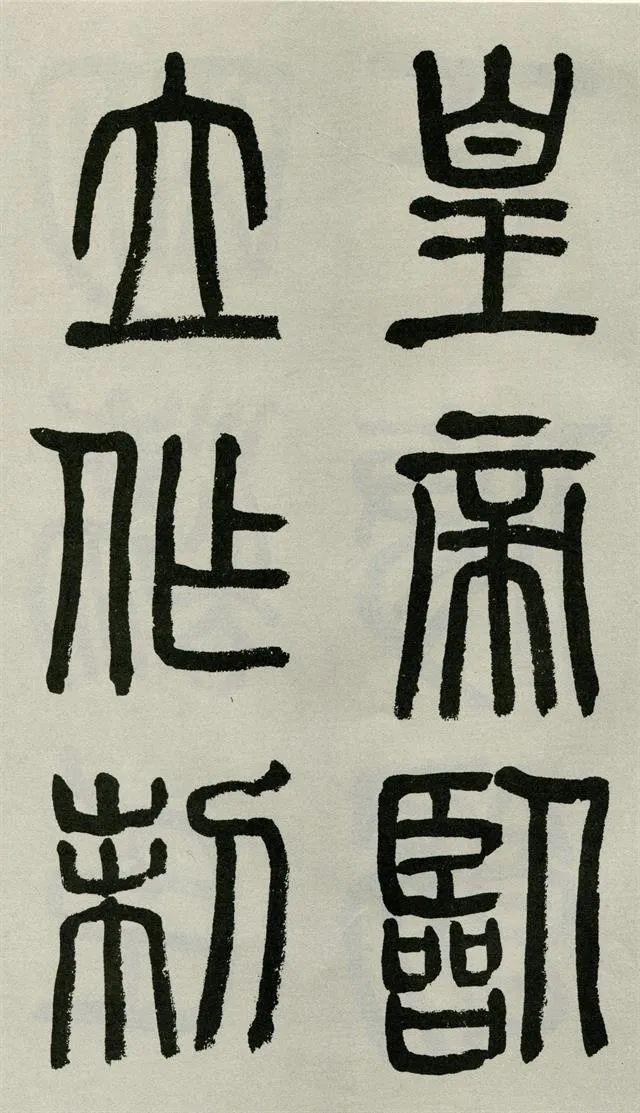 皇帝臨
立作制